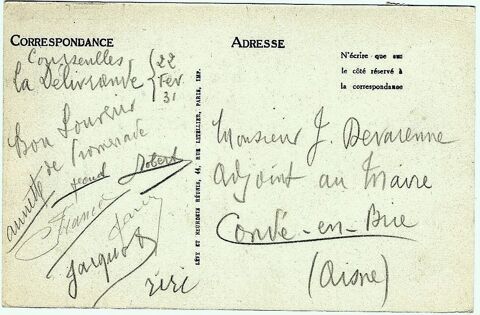 CORRESPONDANCE
Courseulles
La Délivrande
22
Fev
31
Bon Souvenir
de Promenade
annette
Robert
Jacquot
Ziri
LÉVY ET NEURDEIN RÉUNIS, 44, RUE LETELLIER, PARIS, IMP.
ADRESSE
N'écrire que sur
le côté réservé à
la correspondance
Monsieur J. Devarenne
Adjoint au Maire
Condé-en-Brie
(Aisne)